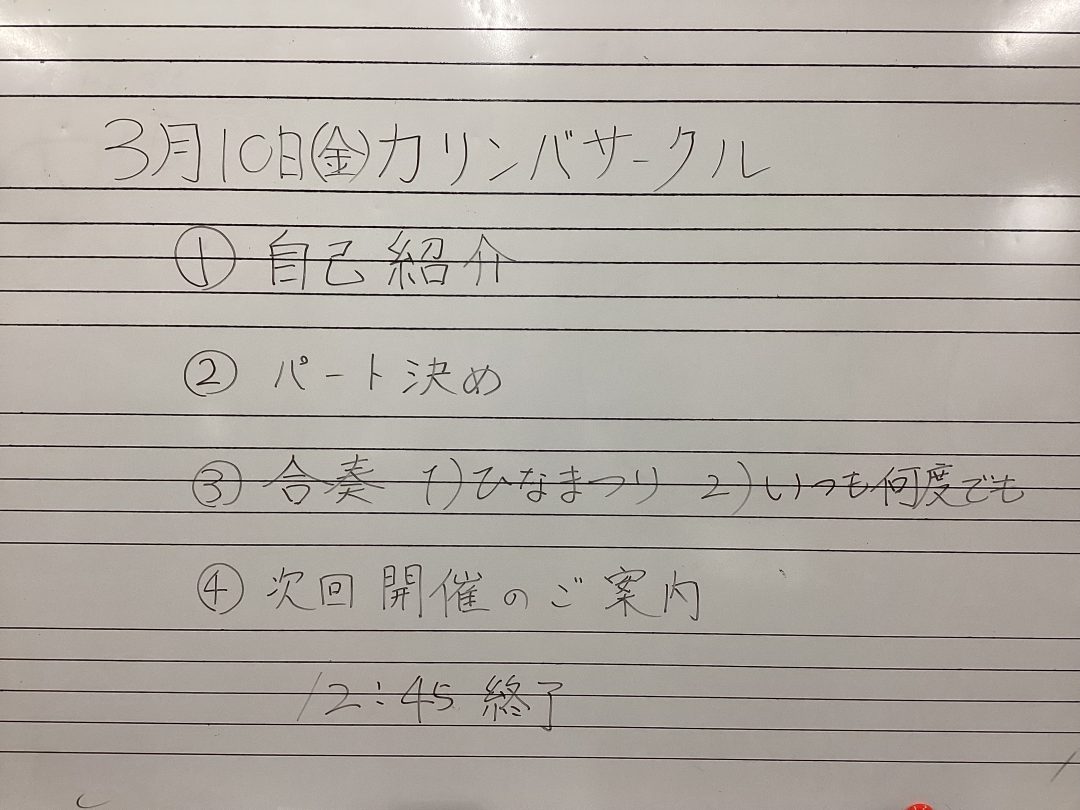 3月10日(金)カリンバサークル
① 自己紹介
② パート決め
③ 合奏 1)ひなまつり 2)いつも何度でも
④ 次回開催のご案内
12:45 終了